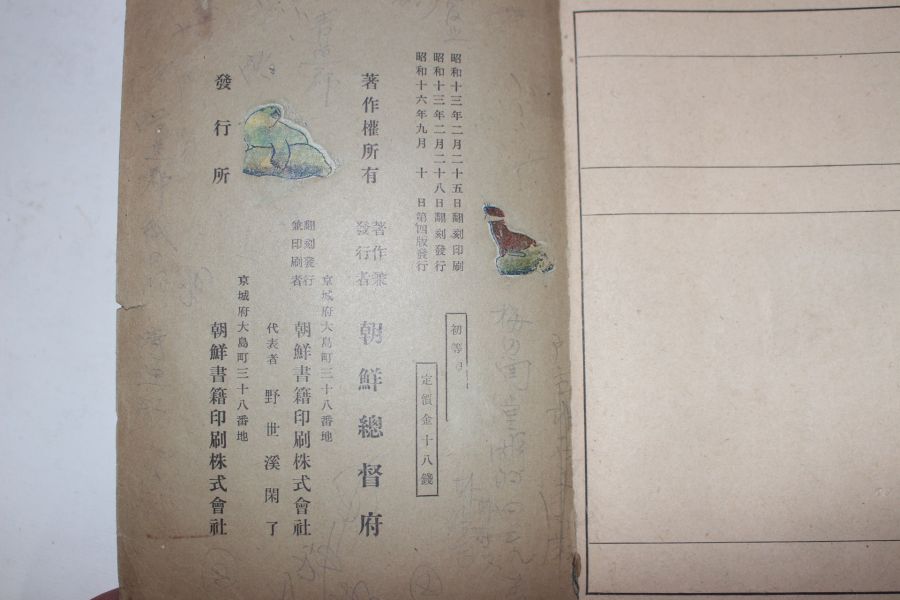 昭和十三年二月二十五日翻刻印刷
昭和十三年二月二十八日翻刻發行
昭和十六年九月 十 日第四版發行
初等
定價金十八錢
著作權所有
著作兼
發行者
朝鮮總督府
京城府大島町三十八番地
翻刻發行
兼印刷者
朝鮮書籍印刷株式會社
代表者 野世溪閑了
京城府大島町三十八番地
發行所
朝鮮書籍印刷株式會社